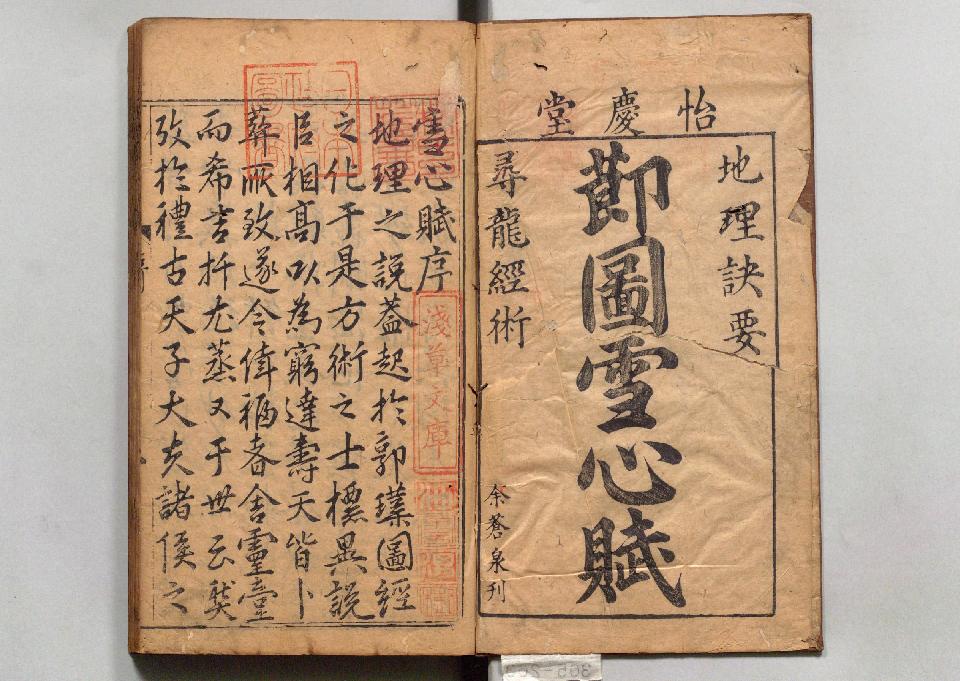 怡慶堂
地理訣要
莭圖雪心賦
尋龍經術
余蒼泉刊
雪心賦序
淺草文庫
地理之說蓋起於郭璞圖經
之化于是方術之士標異說
相高以為窮達壽夭皆卜
葬厥致遂令福者舍靈臺
而希吉扦尤蒸又于世云獘
攷於禮古天子大夫諸侯之